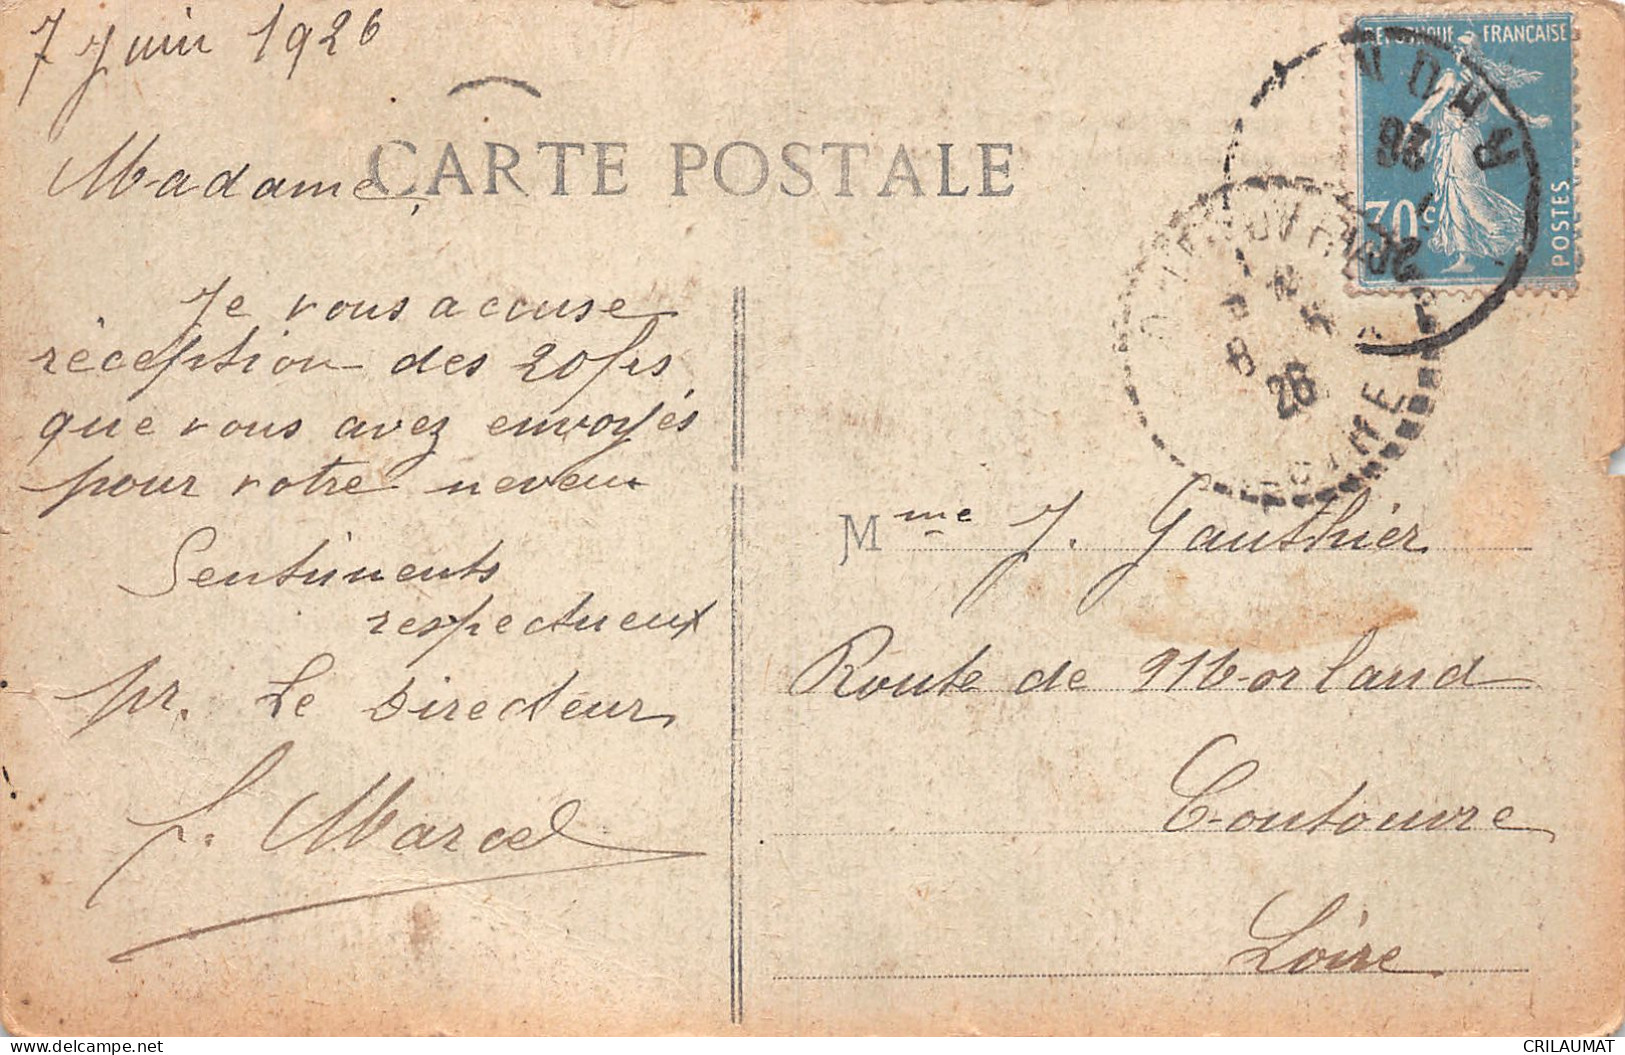 7 Juin 1926
CARTE POSTALE
Madame,
Je vous accuse
réception des 20frs
que vous avez envoyés
pour votre neveu
Sentiments
respectueux
pr. Le Directeur
f. Marcel
RÉPUBLIQUE FRANÇAISE
30c
POSTES
26
8
26
Mme J. Gauthier
Route de Morland
Coutouvre
Loire
CRILAUMAT